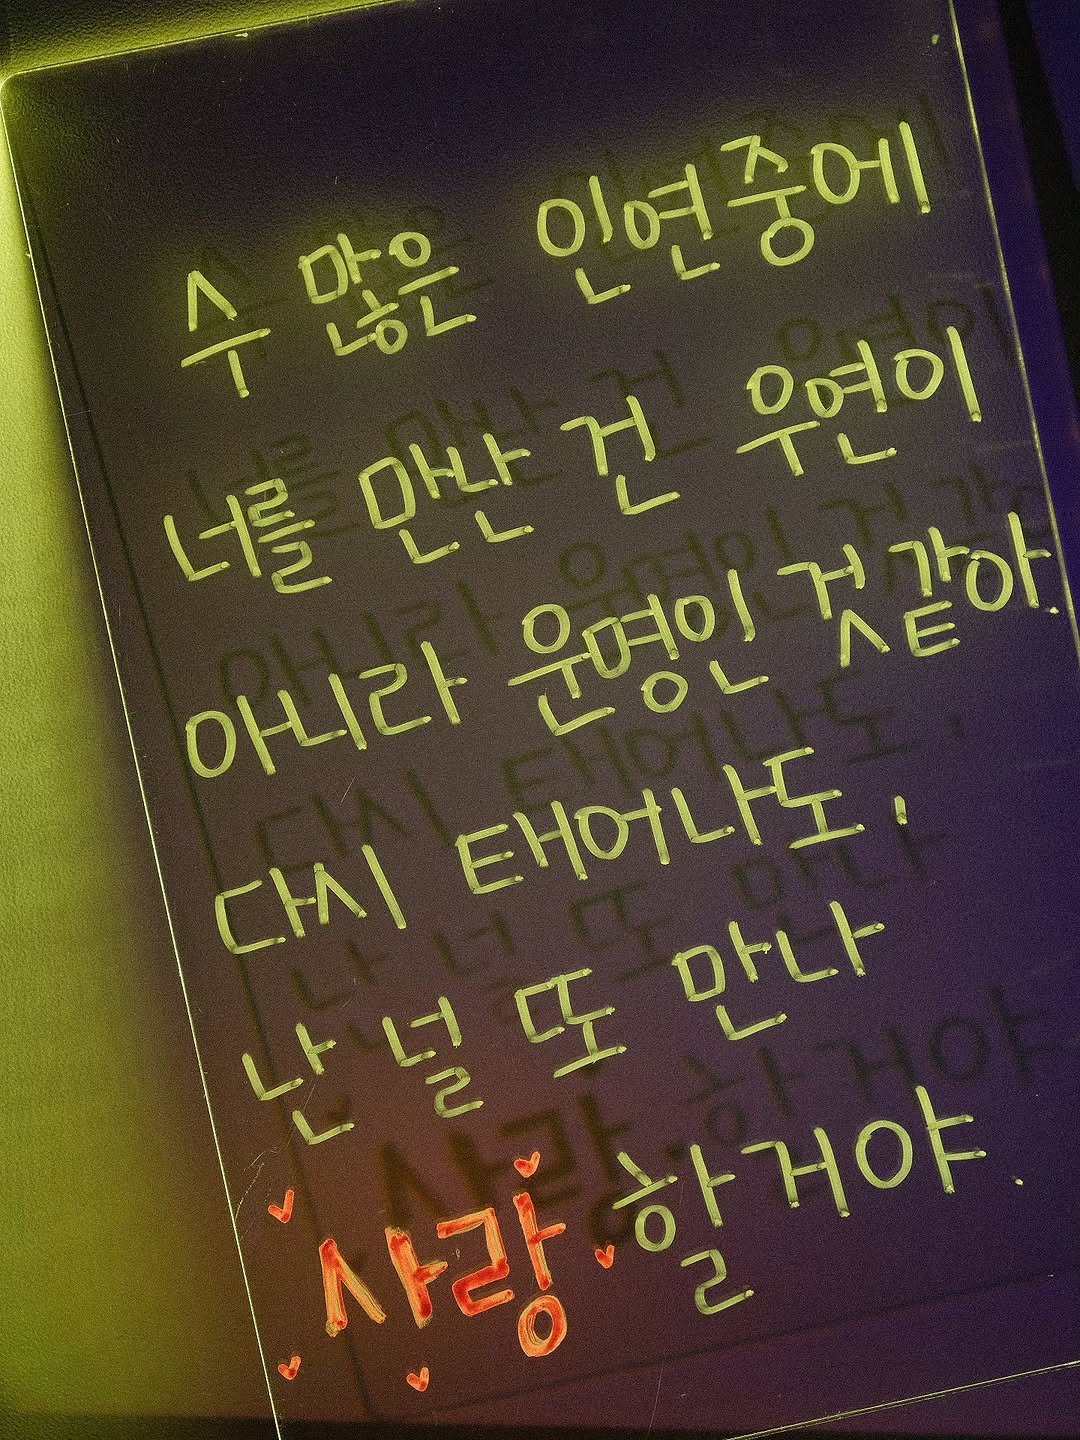 수 많은 인연중에
너를 만난 건 우연이
아니라 운명인 것 같아.
다시 태어나도,
난 널 또 만나
사랑 할거야.